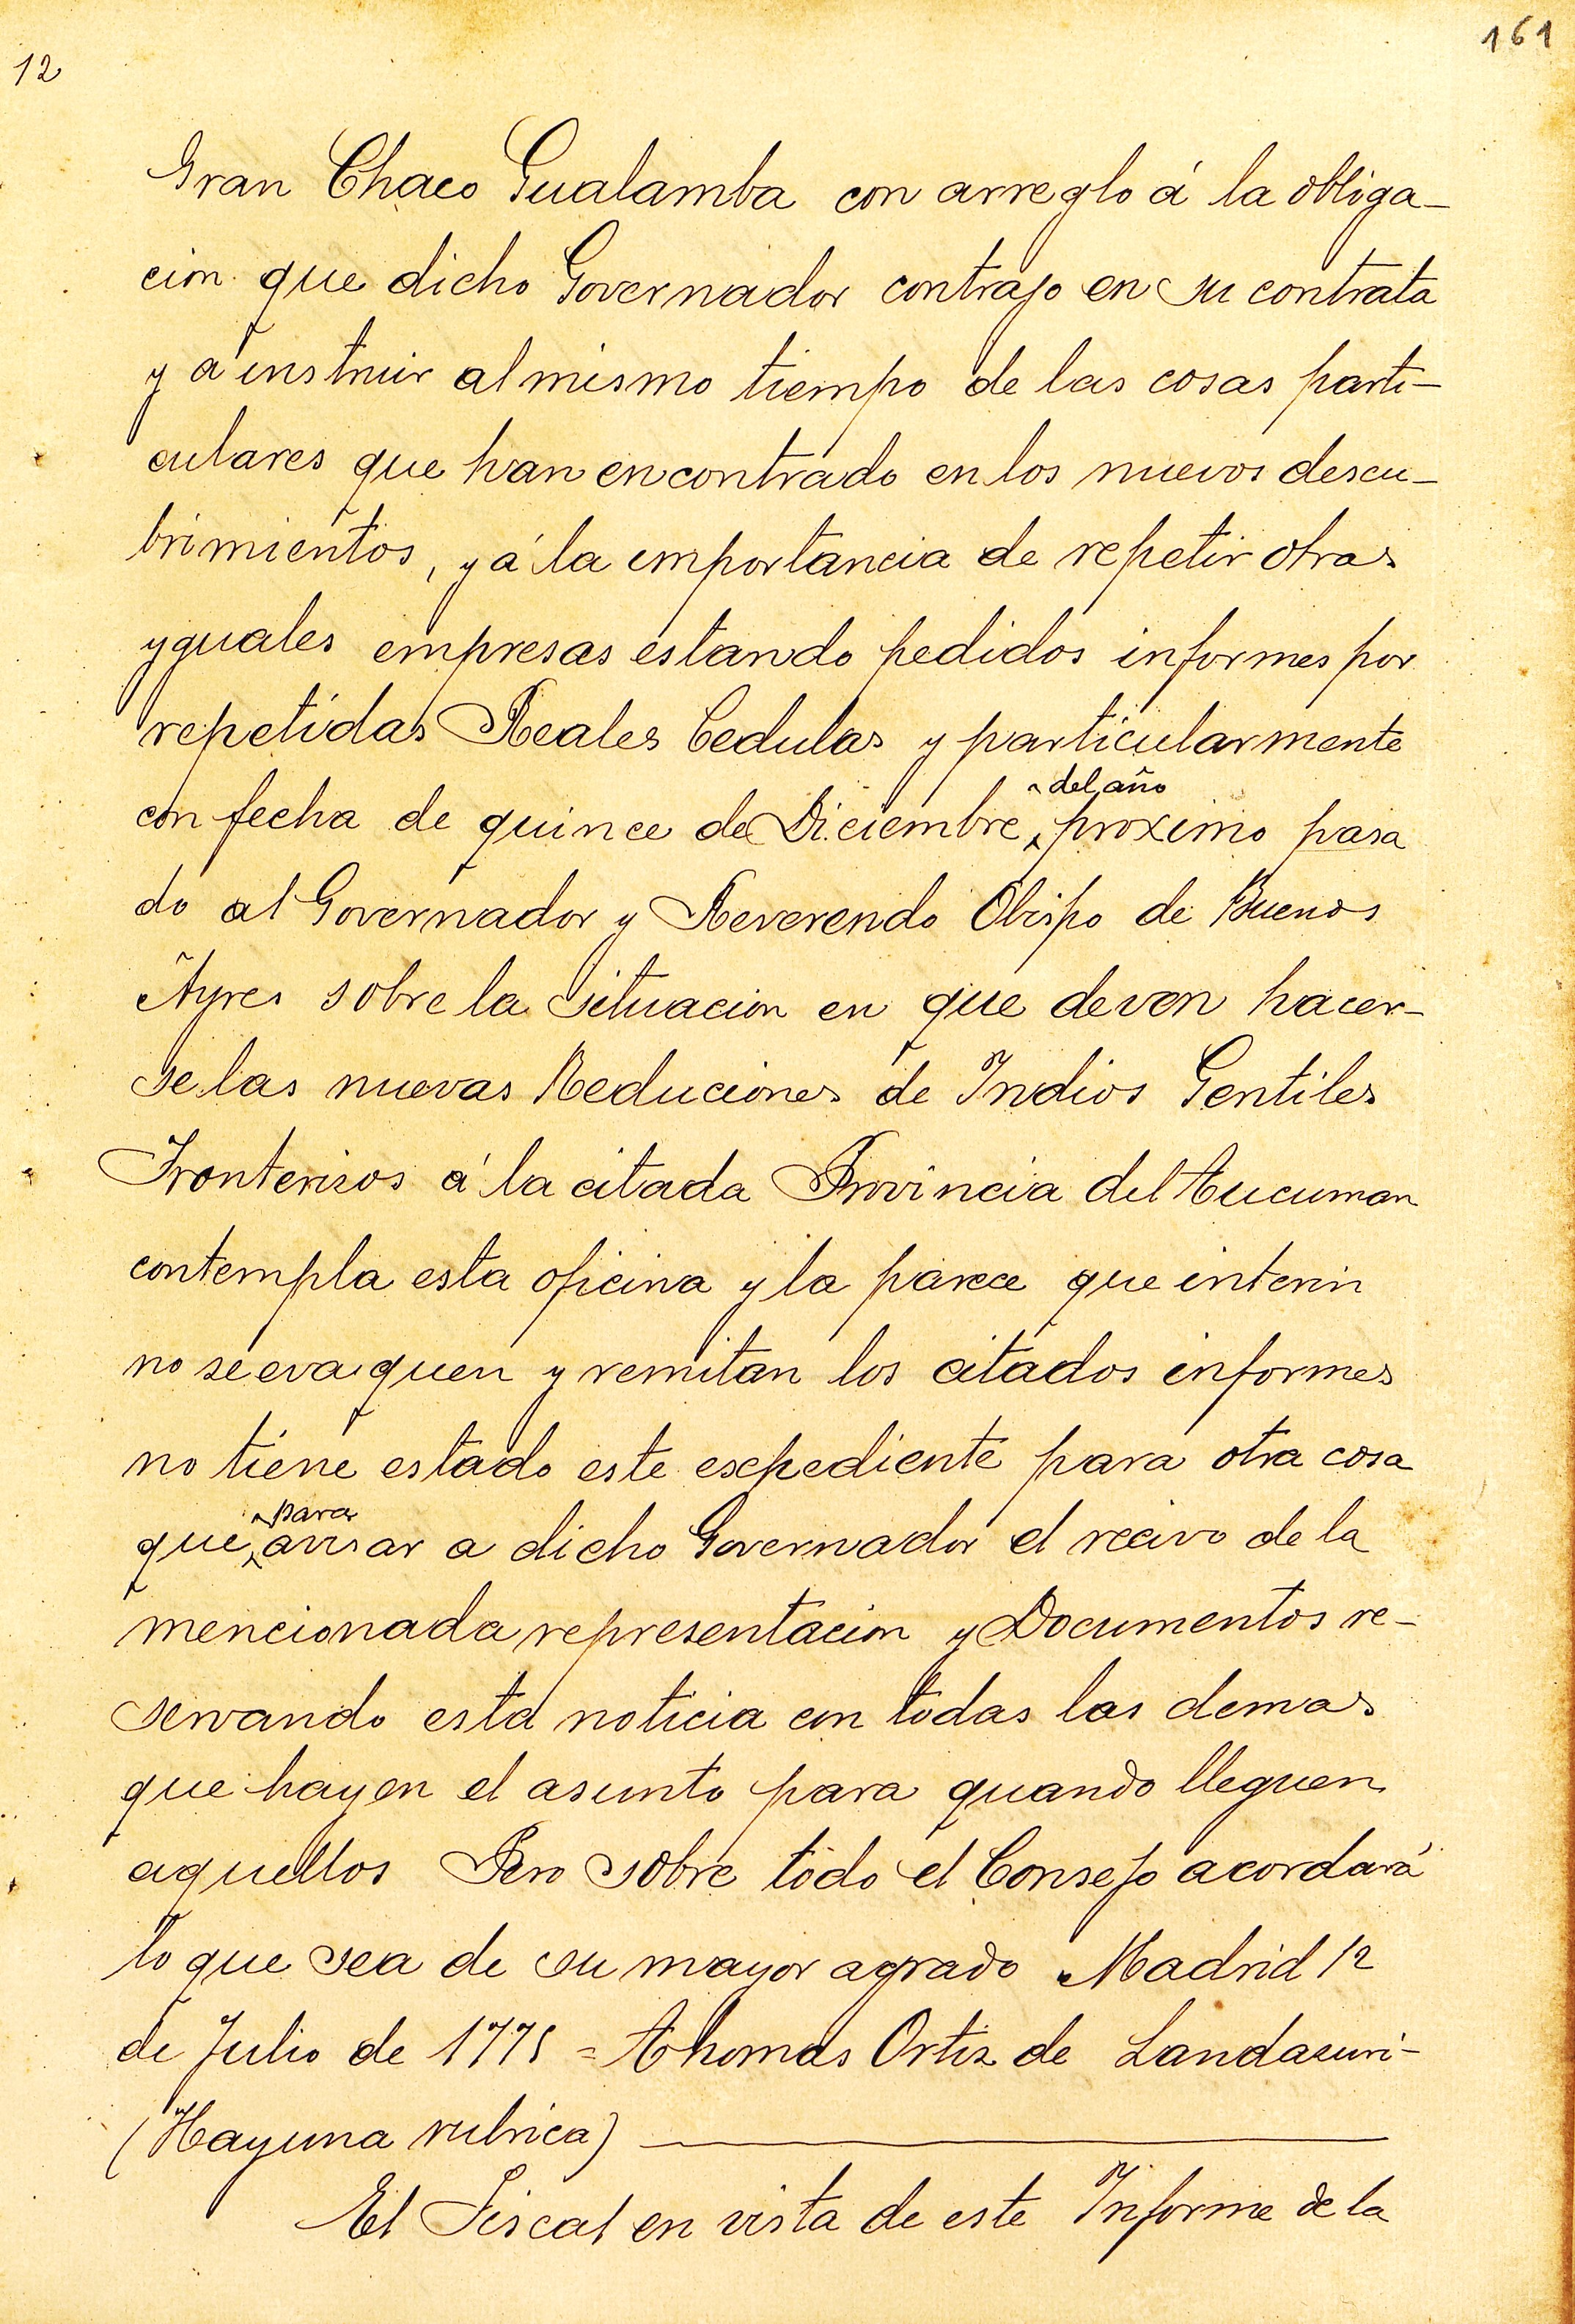 12
161
Gran Chaco Gualamba con arreglo á la obliga-
cion que dicho Governador contrajo en su contrata
y á instruir al mismo tiempo de las cosas parti-
culares que han encontrado en los nuevos descu-
brimientos, y á la importancia de repetir otras
yguales empresas estando pedidos informes por
repetidas Reales Cedulas y particularmente
del año
con fecha de quince de Diciembre proximo pasa
do al Governador y Reverendo Obispo de Buenos
Ayres sobre la situacion en que deven hacer-
se las nuevas Reduciones de Indios Gentiles
Fronterisos á la citada Provincia del Tucuman
contempla esta oficina y la parece que interin
no se evaquen y remitan los citados informes
no tiene estado este expediente para otra cosa
para
que avisar a dicho Governador el recivo de la
mencionada representacion y Documentos re-
servando esta noticia con todas las demas
que hay en el asunto para quando lleguen
aquellos Pero sobre todo el Consejo acordará
lo que sea de su mayor agrado Madrid 12
de Julio de 1775 = Thomas Ortiz de Landazuri-
(Hay una rubrica)
El Fiscal en vista de este Informe de la